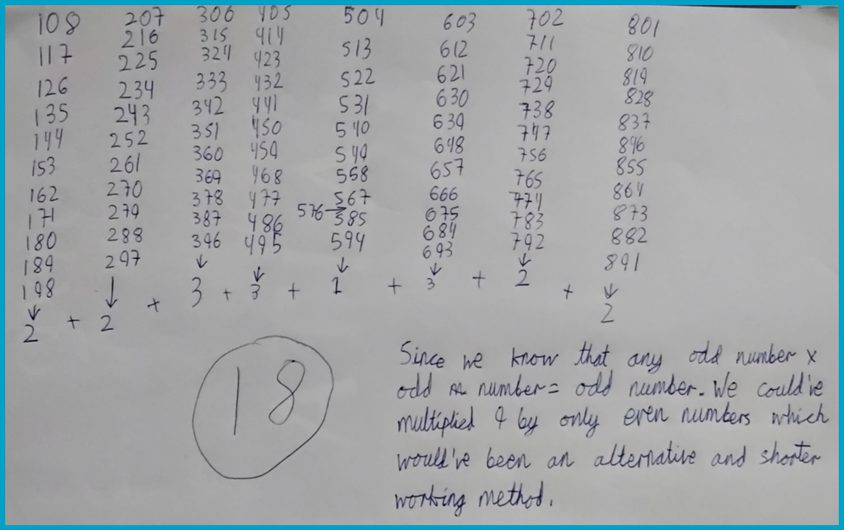 108 207 306 405 504 603 702 801
117 216 315 414 513 612 711 810
126 225 324 423 522 621 720 819
135 234 333 432 531 630 729 828
144 243 342 441 540 639 738 837
153 252 351 450 549 648 747 846
162 261 360 459 558 657 756 855
171 270 369 468 567 666 765 864
180 279 378 477 576→ 675 774 873
189 288 387 486 585 684 783 882
198 297 396 495 594 693 792 891
↓ ↓ ↓ ↓ ↓ ↓ ↓ ↓
2 + 2 + 3 + 3 + 1 + 3 + 2 + 2
18
Since we know that any odd number x
odd number = odd number. We could've
multiplied 9 by only even numbers which
would've been an alternative and shorter
working method.